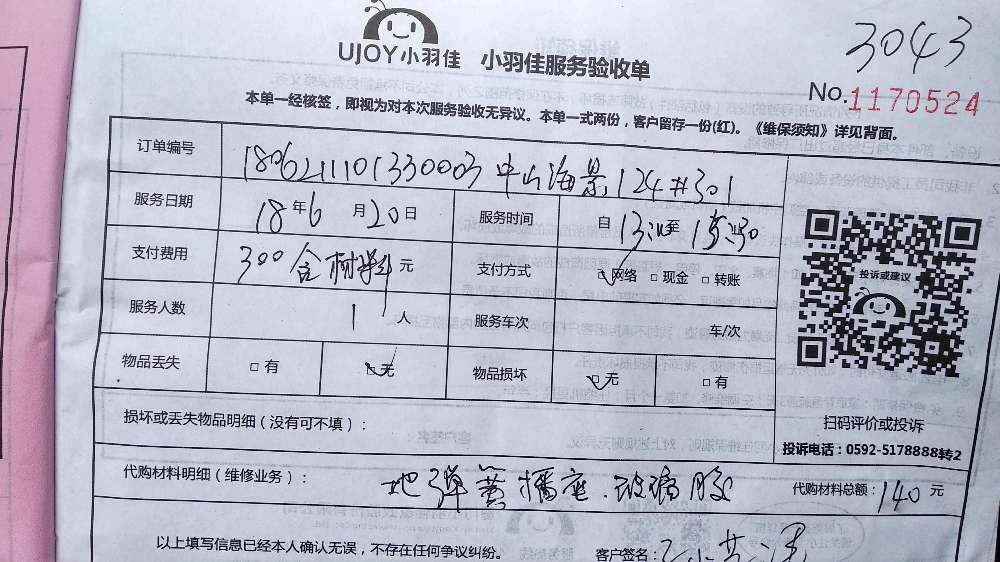 3043
UJOY小羽佳 小羽佳服务验收单
No.1170524
本单一经核签，即视为对本次服务验收无异议。本单一式两份，客户留存一份(红)。《维保须知》详见背面。
订单编号 1806211101330003 中山海景124#301
服务日期 18年6月20日 服务时间 自13:00至15:30
支付费用 300含材料元 支付方式 ☑网络 □现金 □转账
投诉或建议
服务人数 1人 服务车次 车/次
物品丢失 □有 ☑无 物品损坏 ☑无 □有
损坏或丢失物品明细（没有可不填）：
扫码评价或投诉
投诉电话：0592-5178888转2
代购材料明细（维修业务）： 地弹簧插座.玻璃胶 代购材料总额：140元
以上填写信息已经本人确认无误，不存在任何争议纠纷。 客户签名：